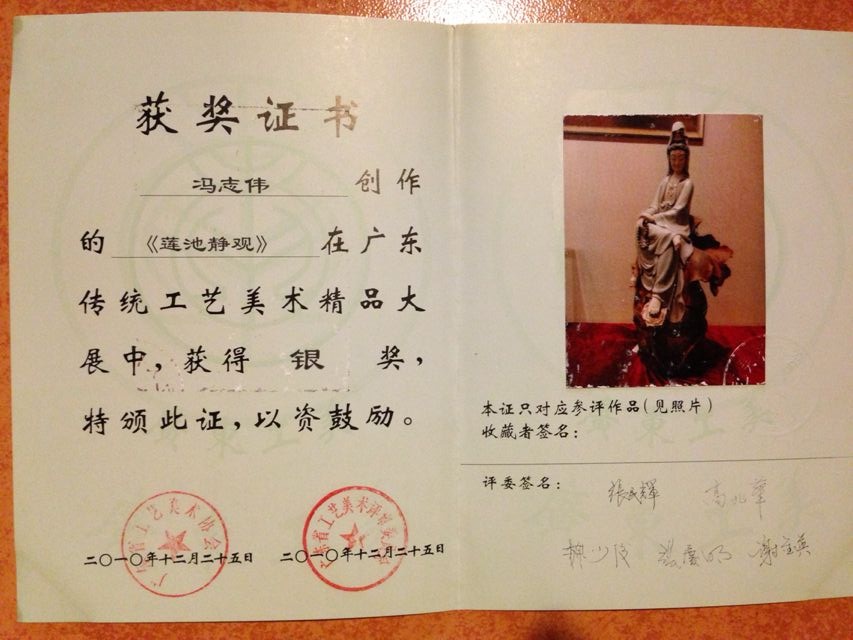 获奖证书
冯志伟 创作
的《莲池静观》在广东
传统工艺美术精品大
展中，获得 银 奖，
特颁此证，以资鼓励。
广东省工艺美术协会
二〇一〇年十二月二十五日
广东省工艺美术评审委员会
二〇一〇年十二月二十五日
本证只对应参评作品（见照片）
收藏者签名：
评委签名：
张民辉